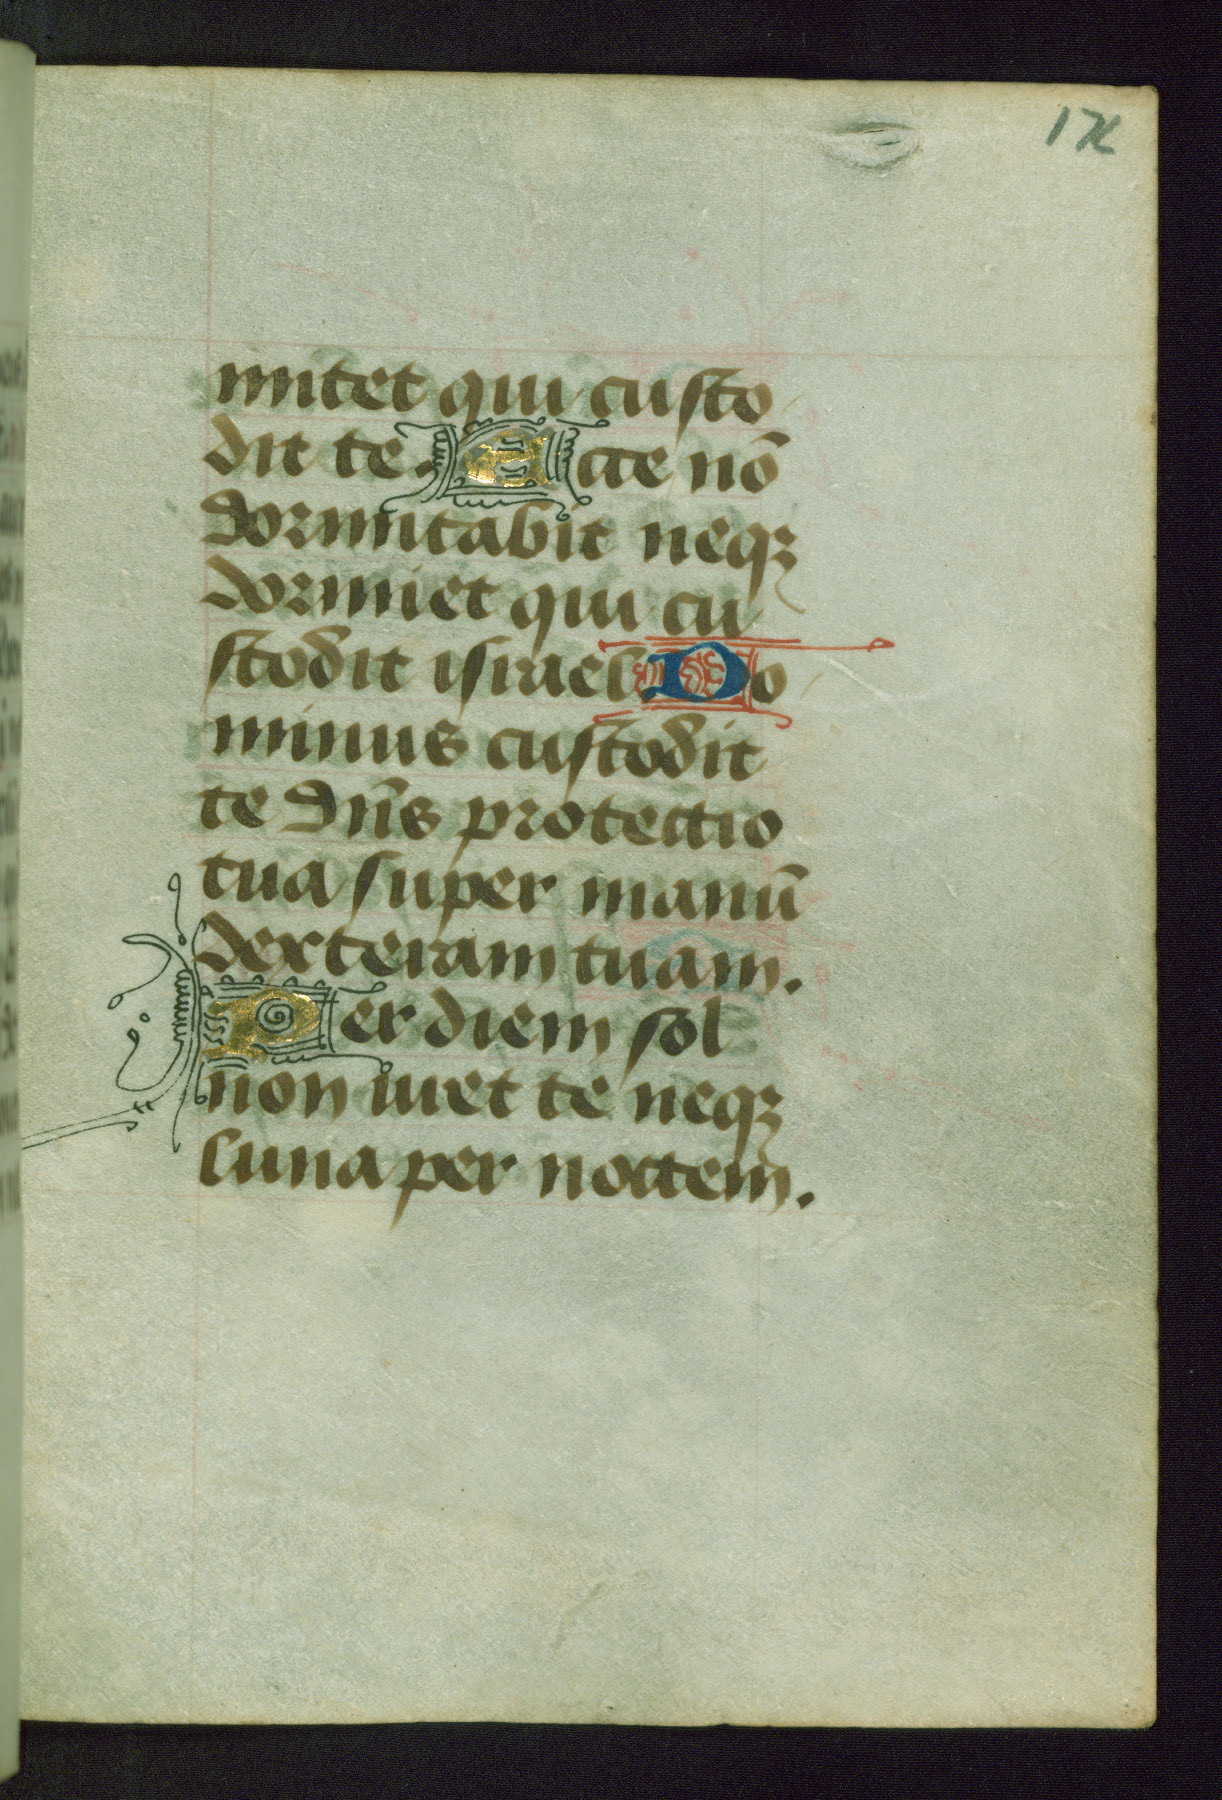 176
mitet qui custo
dit te. Ecce nō
dormitabit neqꝫ
dormiet qui cu
stodit israel. Do
minus custodit
te dn̄s protectio
tua super manū
dexteram tuam.
Per diem sol
non uret te neqꝫ
luna per noctem.